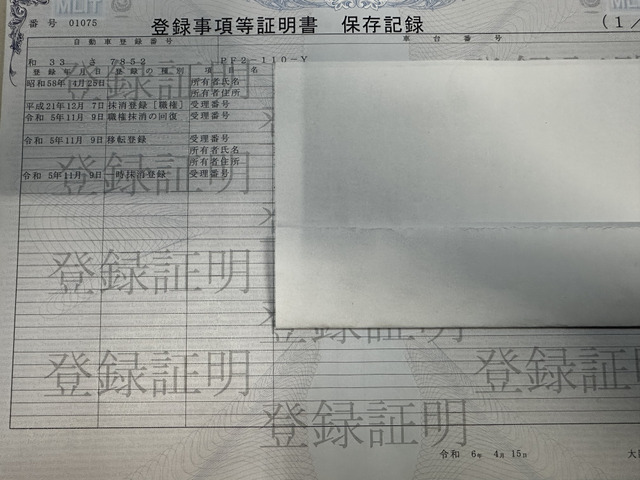 MLIT
番号 01075
登録事項等証明書 保存記録
(1/
自動車登録番号 車台番号
和 33 さ 7852 PF2-110-Y
登録年月日 登録の種別 項目名
昭和58年 4月25日 所有者氏名
所有者住所
平成21年12月 7日 抹消登録[職権] 受理番号
令和 5年11月 9日 職権抹消の回復 受理番号
令和 5年11月 9日 移転登録 受理番号
所有者氏名
所有者住所
令和 5年11月 9日 一時抹消登録 受理番号
登録証明
登録証明
登録証明
登録証明
登録証明
登録証明
令和 6年 4月 15日